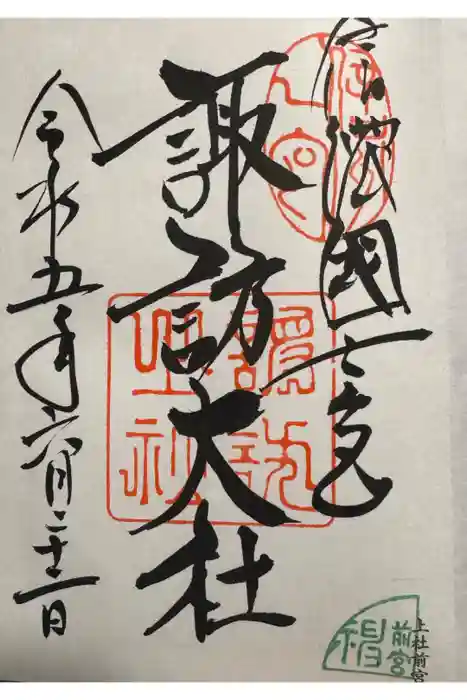 信濃國一之宮
諏訪大社
令和五年六月二十二日
信濃
一宮
前宮
上社前宮